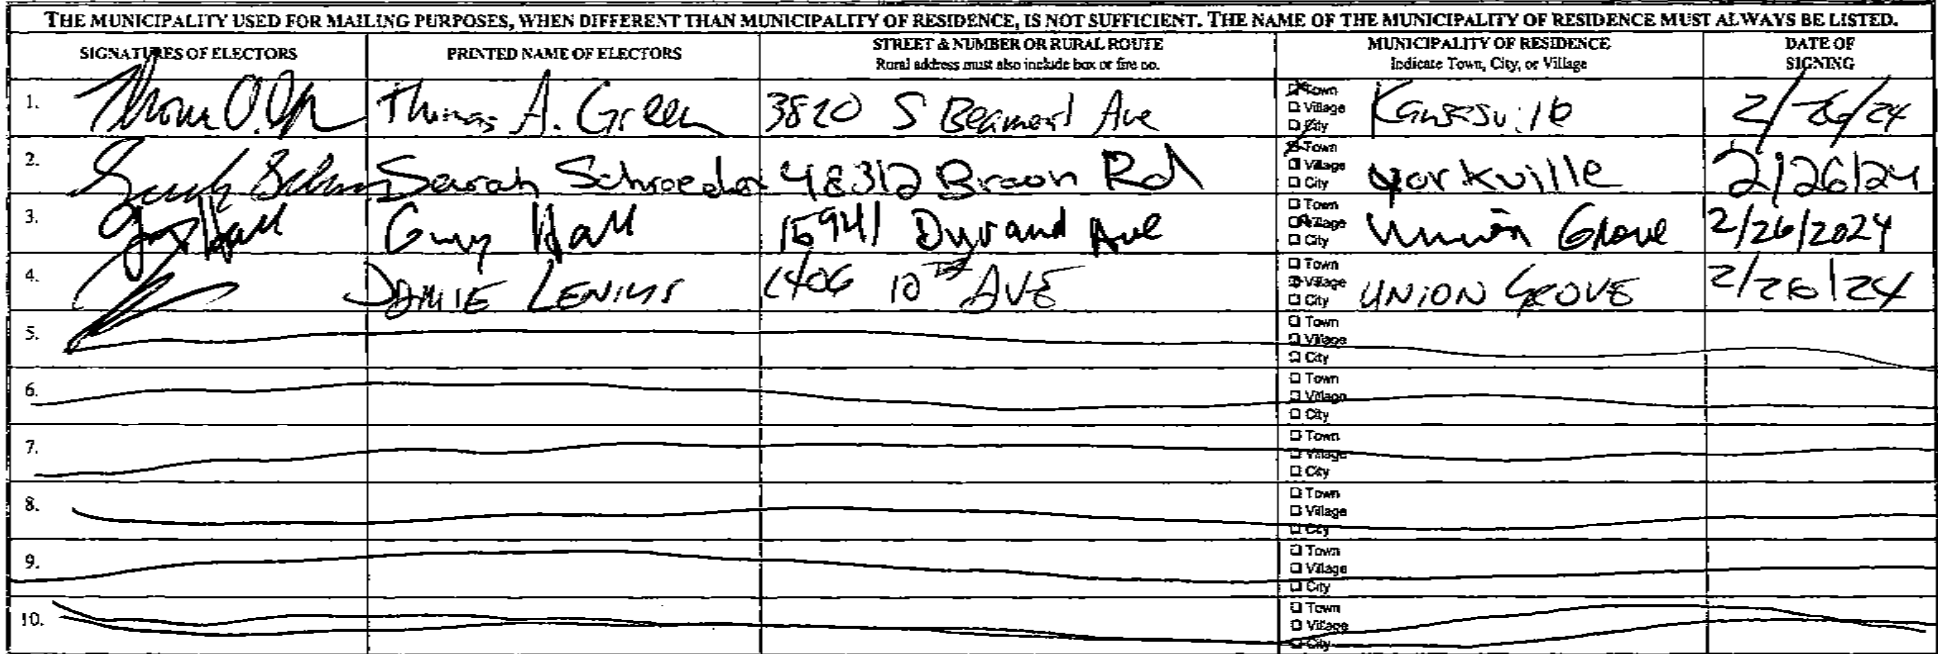 THE MUNICIPALITY USED FOR MAILING PURPOSES, WHEN DIFFERENT THAN MUNICIPALITY OF RESIDENCE, IS NOT SUFFICIENT. THE NAME OF THE MUNICIPALITY OF RESIDENCE MUST ALWAYS BE LISTED.
SIGNATURES OF ELECTORS PRINTED NAME OF ELECTORS STREET & NUMBER OR RURAL ROUTE MUNICIPALITY OF RESIDENCE DATE OF SIGNING
Rural address must also include box or fire no. Indicate Town, City, or Village
1. Thomas A. Green 3820 S Beamont Ave Town Village City Kansasville 2/26/24
2. Sarah Schroeder Rd Town Village City Yorkville 2/26/24
3. Guy Hall 15941 Durand Ave Town Village City Union Grove 2/26/2024
4. JAMIE LENIUS 1406 10TH AVE Town Village City UNION GROVE 2/26/24
5. Town Village City
6. Town Village City
7. Town Village City
8. Town Village City
9. Town Village City
10. Town Village City